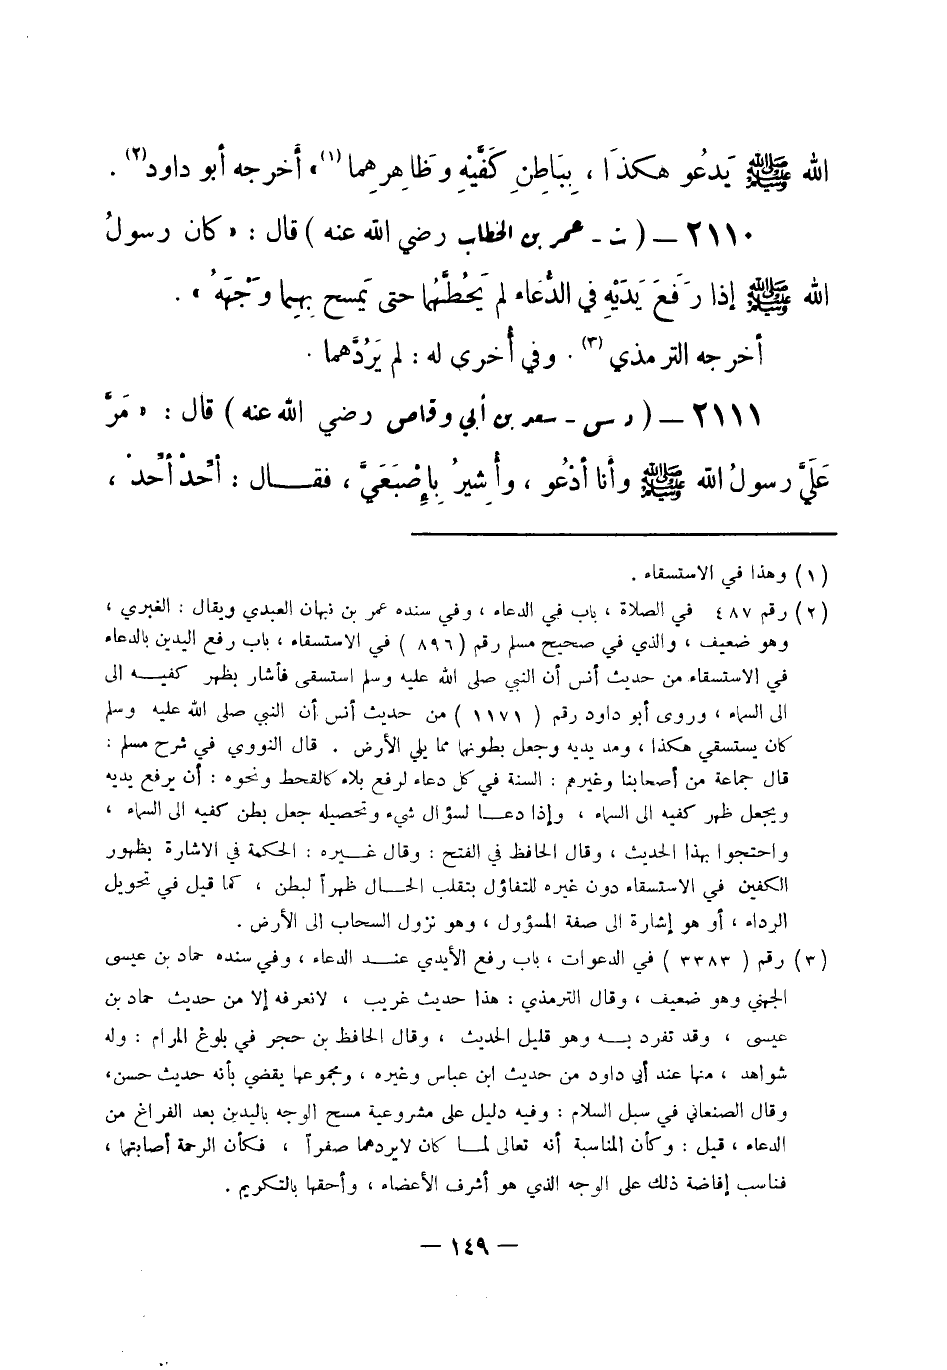 الله ﷺ يَدعُو هكذَا ، بِبَاطِنِ كَفَّيْهِ وَظَاهِرِهِما (١) » أخرجه أبو داود (٢) .
٢١١٠ – ( ت - عمر بن الخطاب رضي الله عنه ) قال : « كان رسولُ
الله ﷺ إذا رَفَعَ يَدَيْهِ في الدُّعَاء لم يَحُطَّهُما حتى يَمسح بِهِما وَجْهَهُ » .
أخرجه الترمذي (٣) . وفي أُخرى له : لم يَرُدَّهما .
٢١١١ – ( د س - سعد بن أبي وقاص رضي الله عنه ) قال : « مَرَّ
عَلَيَّ رسولُ الله ﷺ وأنا أدْعُو ، وأُشيرُ بِإِصْبَعَيَّ ، فقـــال : أحِّدْ أحِّدْ ،
(١) وهذا في الاستسقاء .
(٢) رقم ٤٨٧ في الصلاة ، باب في الدعاء ، وفي سنده عمر بن نبهان العبدي ويقال : الغبري ،
وهو ضعيف ، والذي في صحيح مسلم رقم ( ٨٩٦ ) في الاستسقاء ، باب رفع اليدين بالدعاء
في الاستسقاء من حديث أنس أن النبي صلى الله عليه وسلم استسقى فأشار بظهر كفيـــه الى
الى السماء ، وروى أبو داود رقم ( ١١٧١ ) من حديث أنس أن النبي صلى الله عليه وسلم
كان يستسقي هكذا ، ومد يديه وجعل بطونها مما يلي الأرض . قال النووي في شرح مسلم :
قال جماعة من أصحابنا وغيرهم : السنة في كل دعاء لرفع بلاء كالقحط ونحوه : أن يرفع يديه
ويجعل ظهر كفيه الى السماء ، وإذا دعـــا لسؤال شيء وتحصيله جعل بطن كفيه الى السماء ،
واحتجوا بهذا الحديث ، وقال الحافظ في الفتح : وقال غـــيره : الحكمة في الاشارة بظهور
الكفين في الاستسقاء دون غيره للتفاؤل بتقلب الحـــال ظهراً لبطن ، كما قيل في تحويل
الرداء ، أو هو إشارة الى صفة المسؤول ، وهو نزول السحاب الى الأرض .
(٣) رقم ( ٣٣٨٣ ) في الدعوات ، باب رفع الأيدي عنـــد الدعاء ، وفي سنده حماد بن عيسى
الجهني وهو ضعيف ، وقال الترمذي : هذا حديث غريب ، لانعرفه إلا من حديث حماد بن
عيسى ، وقد تفرد بـــه وهو قليل الحديث ، وقال الحافظ بن حجر في بلوغ المرام : وله
شواهد ، منها عند أبي داود من حديث ابن عباس وغيره ، ومجموعها يقضي بأنه حديث حسن،
وقال الصنعاني في سبل السلام : وفيه دليل على مشروعية مسح الوجه باليدين بعد الفراغ من
الدعاء ، قيل : وكأن المناسبة أنه تعالى لمـــا كان لايردهما صفراً ، فكأن الرحمة أصابتها ،
فناسب إفاضة ذلك على الوجه الذي هو أشرف الأعضاء ، وأحقها بالتكريم .
– ١٤٩ –